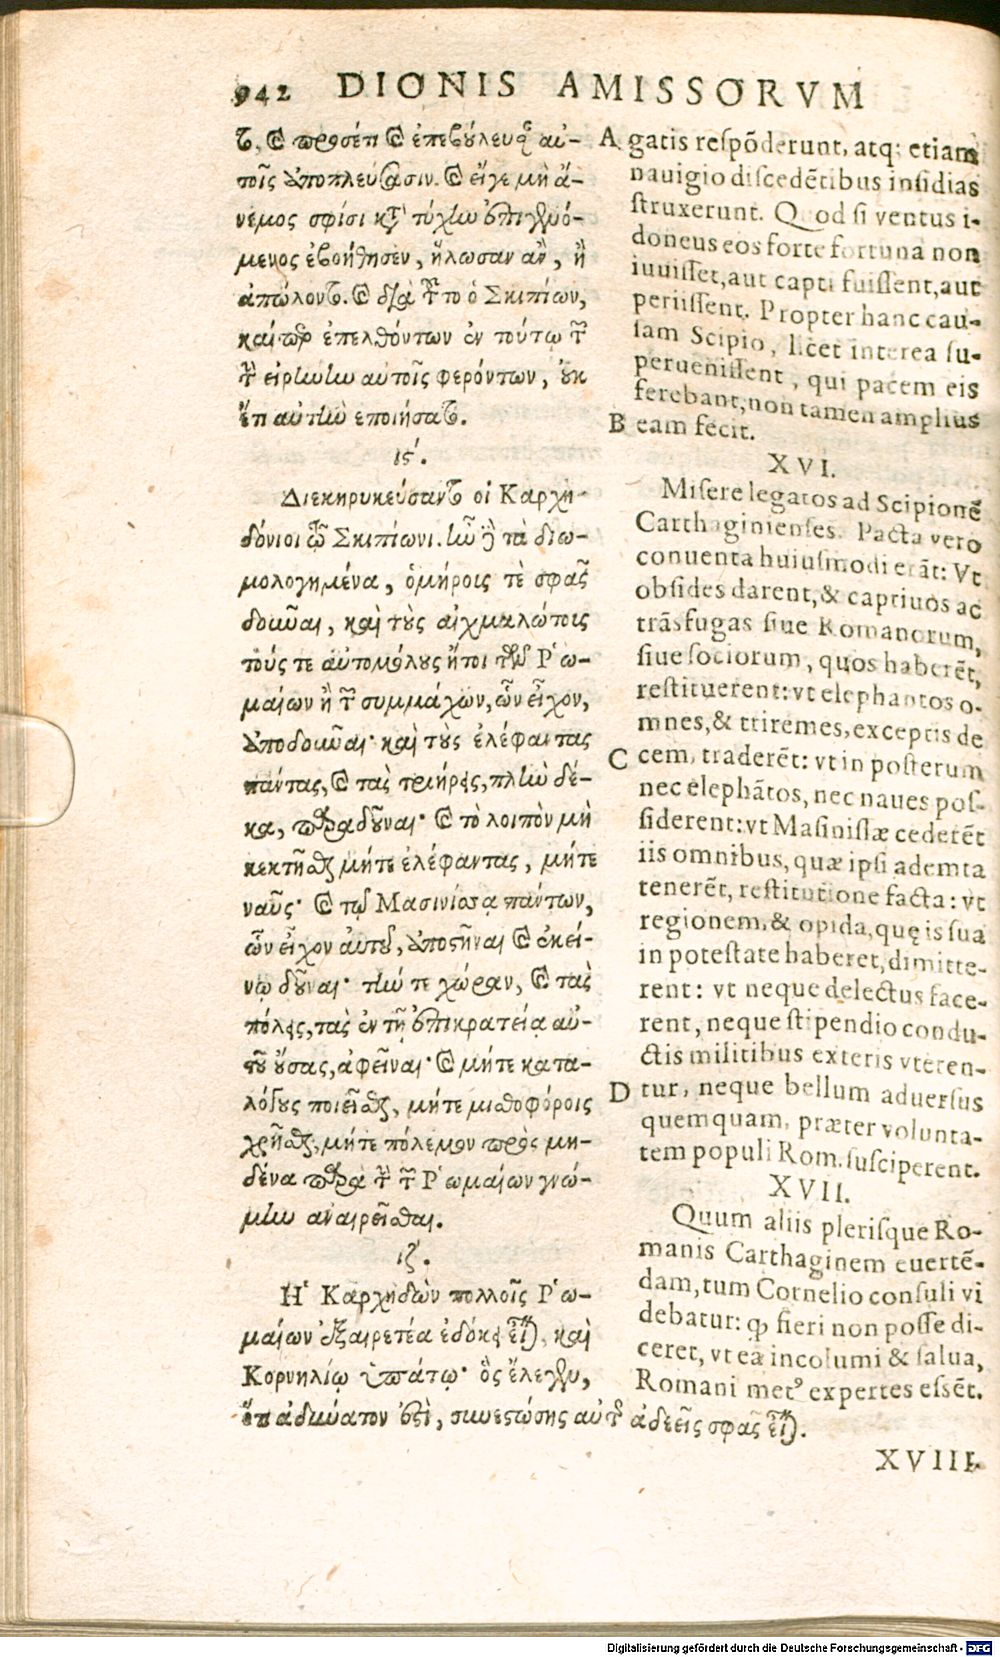 942 DIONIS AMISSORVM
ϖροσέτι ἐπεβούλευσ αὐ-
τοῖς ἀποπλεύσασιν. καὶ εἴγε μὴ ἄ-
νεμος σφίσι κτ τύχίω ἐπιγινό-
μενος ἐβοήθησεν, ἥλωσαν ἂν, ἢ
ἀπώλοντο. καὶ διὰ τ το ὁ Σκιπίων,
καίπερ ἐπελθόντων ἐν τούτῳ τ
τ εἰρίωίω αὐτοῖς φερόντων, οὐκ
ἔτι αὐτίω ἐποιήσατο.
ιϛʹ.
Διεκηρυκεύσαντο οἱ Καρχη-
δόνιοι τῷ Σκιπίωνι. ἰῶ ἢ τὰ διω-
μολογημένα, ὁμήροις τὲ σφᾶς
δοιωῦαι, καὶ τοὺς αἰχμαλώτοις
τούς τε αὐτομόλους ἤτοι τῶν Ῥω-
μαίων ἢ τ συμμάχων, ὧν εἶχον,
ἀποδοιωῦαι· καὶ τοὺς ἐλέφαντας
πάντας, καὶ τὰς τριήρεις, πλίω δέ-
κα, ϖραδοῦναι· καὶ τὸ λοιπὸν μὴ
κεκτῆσθαι μήτε ἐλέφαντας, μήτε
ναῦς· καὶ τῷ Μασινίσσᾳ πάντων,
ὧν εἶχον αὐτοῦ, ἀποστῆναι καὶ ἐκεί-
νῳ δοῦναι· τίω τε χώραν, καὶ τὰς
πόλεις, τὰς ἐν τῇ ἐπικρατείᾳ αὐ-
τοῦ οὔσας, ἀφεῖναι· καὶ μήτε κατα-
λόγους ποιεῖσθαι, μήτε μισθοφόροις
χρῆσθαι, μήτε πόλεμον ϖρὸς μη-
δένα παρὰ τ τ Ῥωμαίων γνώ-
μίω ἀναιρεῖσθαι.
ιζʹ.
Ἡ Καρχηδὼν πολλοῖς Ῥω-
μαίων ἐξαιρετέα ἐδόκει εἶναι, καὶ
Κορνηλίῳ ὑπάτῳ· ὃς ἔλεγεν,
ὅτι ἀδιωύατον ἐστὶ, σιωεστώσης αὐτ ἀδεεῖς σφᾶς εἶναι.
A gatis respõderunt, atq; etiam
nauigio discedẽtibus insidias
struxerunt. Quod si ventus i-
doneus eos forte fortuna non
iuuisset, aut capti fuissent, aut
periissent. Propter hanc cau-
sam Scipio, licet interea su-
peruenissent, qui pacem eis
ferebant, non tamen amplius
B eam fecit.
XVI.
Misere legatos ad Scipionẽ
Carthaginienses. Pacta vero
conuenta huiusmodi erãt: Vt
obsides darent, & captiuos ac
trãsfugas siue Romanorum,
siue sociorum, quos haberẽt,
restituerent: vt elephantos o-
mnes, & triremes, exceptis de
C cem, traderẽt: vt in posterum
nec elephãtos, nec naues pos-
siderent: vt Masinissæ cederẽt
iis omnibus, quæ ipsi ademta
tenerẽt, restitutione facta: vt
regionem, & opida, quę is sua
in potestate haberet, dimitte-
rent: vt neque delectus face-
rent, neque stipendio condu-
ctis militibus exteris vteren-
D tur, neque bellum aduersus
quemquam, præter volunta-
tem populi Rom. susciperent.
XVII.
Quum aliis plerisque Ro-
manis Carthaginem euertẽ-
dam, tum Cornelio consuli vi
debatur: ꝙ fieri non posse di-
ceret, vt ea incolumi & salua,
Romani metꝰ expertes essẽt.
XVIII.
Digitalisierung gefördert durch die Deutsche Forschungsgemeinschaft - DFG